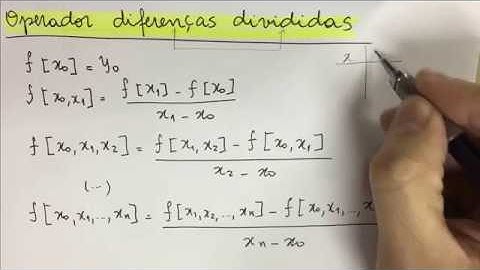 Operador diferenças divididas
f[x₀] = y₀
f[x₀,x₁] = f[x₁] - f[x₀] / x₁ - x₀
f[x₀,x₁,x₂] = f[x₁,x₂] - f[x₀,x₁] / x₂ - x₀
(...)
f[x₀,x₁,...,xₙ] = f[x₁,x₂,...,xₙ] - f[x₀,x₁,..., / xₙ - x₀